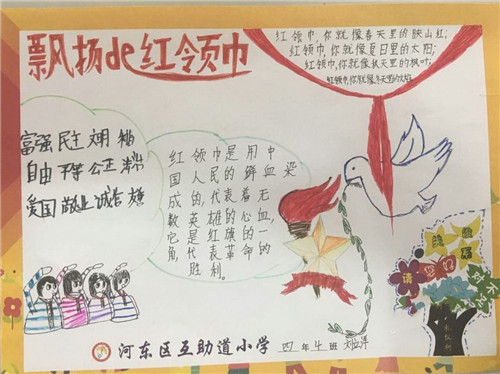 飘扬de红领巾
红领巾,你就像春天里的映山红;
红领巾,你就像夏日里的太阳;
红领巾,你就像秋天里的枫叶;
红领巾,你就像冬天里的火焰
富强 民主 文明 和谐
自由 平等 公正 法治
爱国 敬业 诚信 友善
红领巾是用中
国人民的鲜血染
成的,代表着无
数英雄的心血,
它是红旗的一
角,代表革命的
胜利。
河东区互助道小学 四年4班